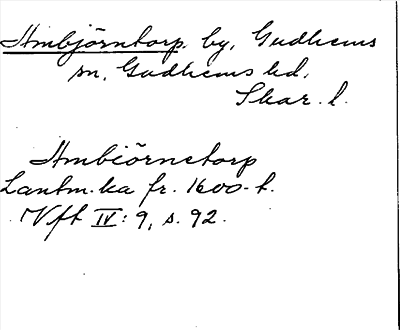 Ambjörntorp. by, Gudhems
sn, Gudhems hd.
Skar. l.
Ambiörnetorp
Lantm. ka fr. 1600-t.
Vft IV: 9, s. 92.